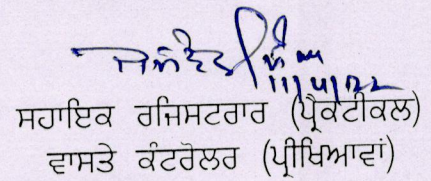 11/4/22
ਸਹਾਇਕ ਰਜਿਸਟਰਾਰ (ਪ੍ਰੈਕਟੀਕਲ)
ਵਾਸਤੇ ਕੰਟਰੋਲਰ (ਪ੍ਰੀਖਿਆਵਾਂ)